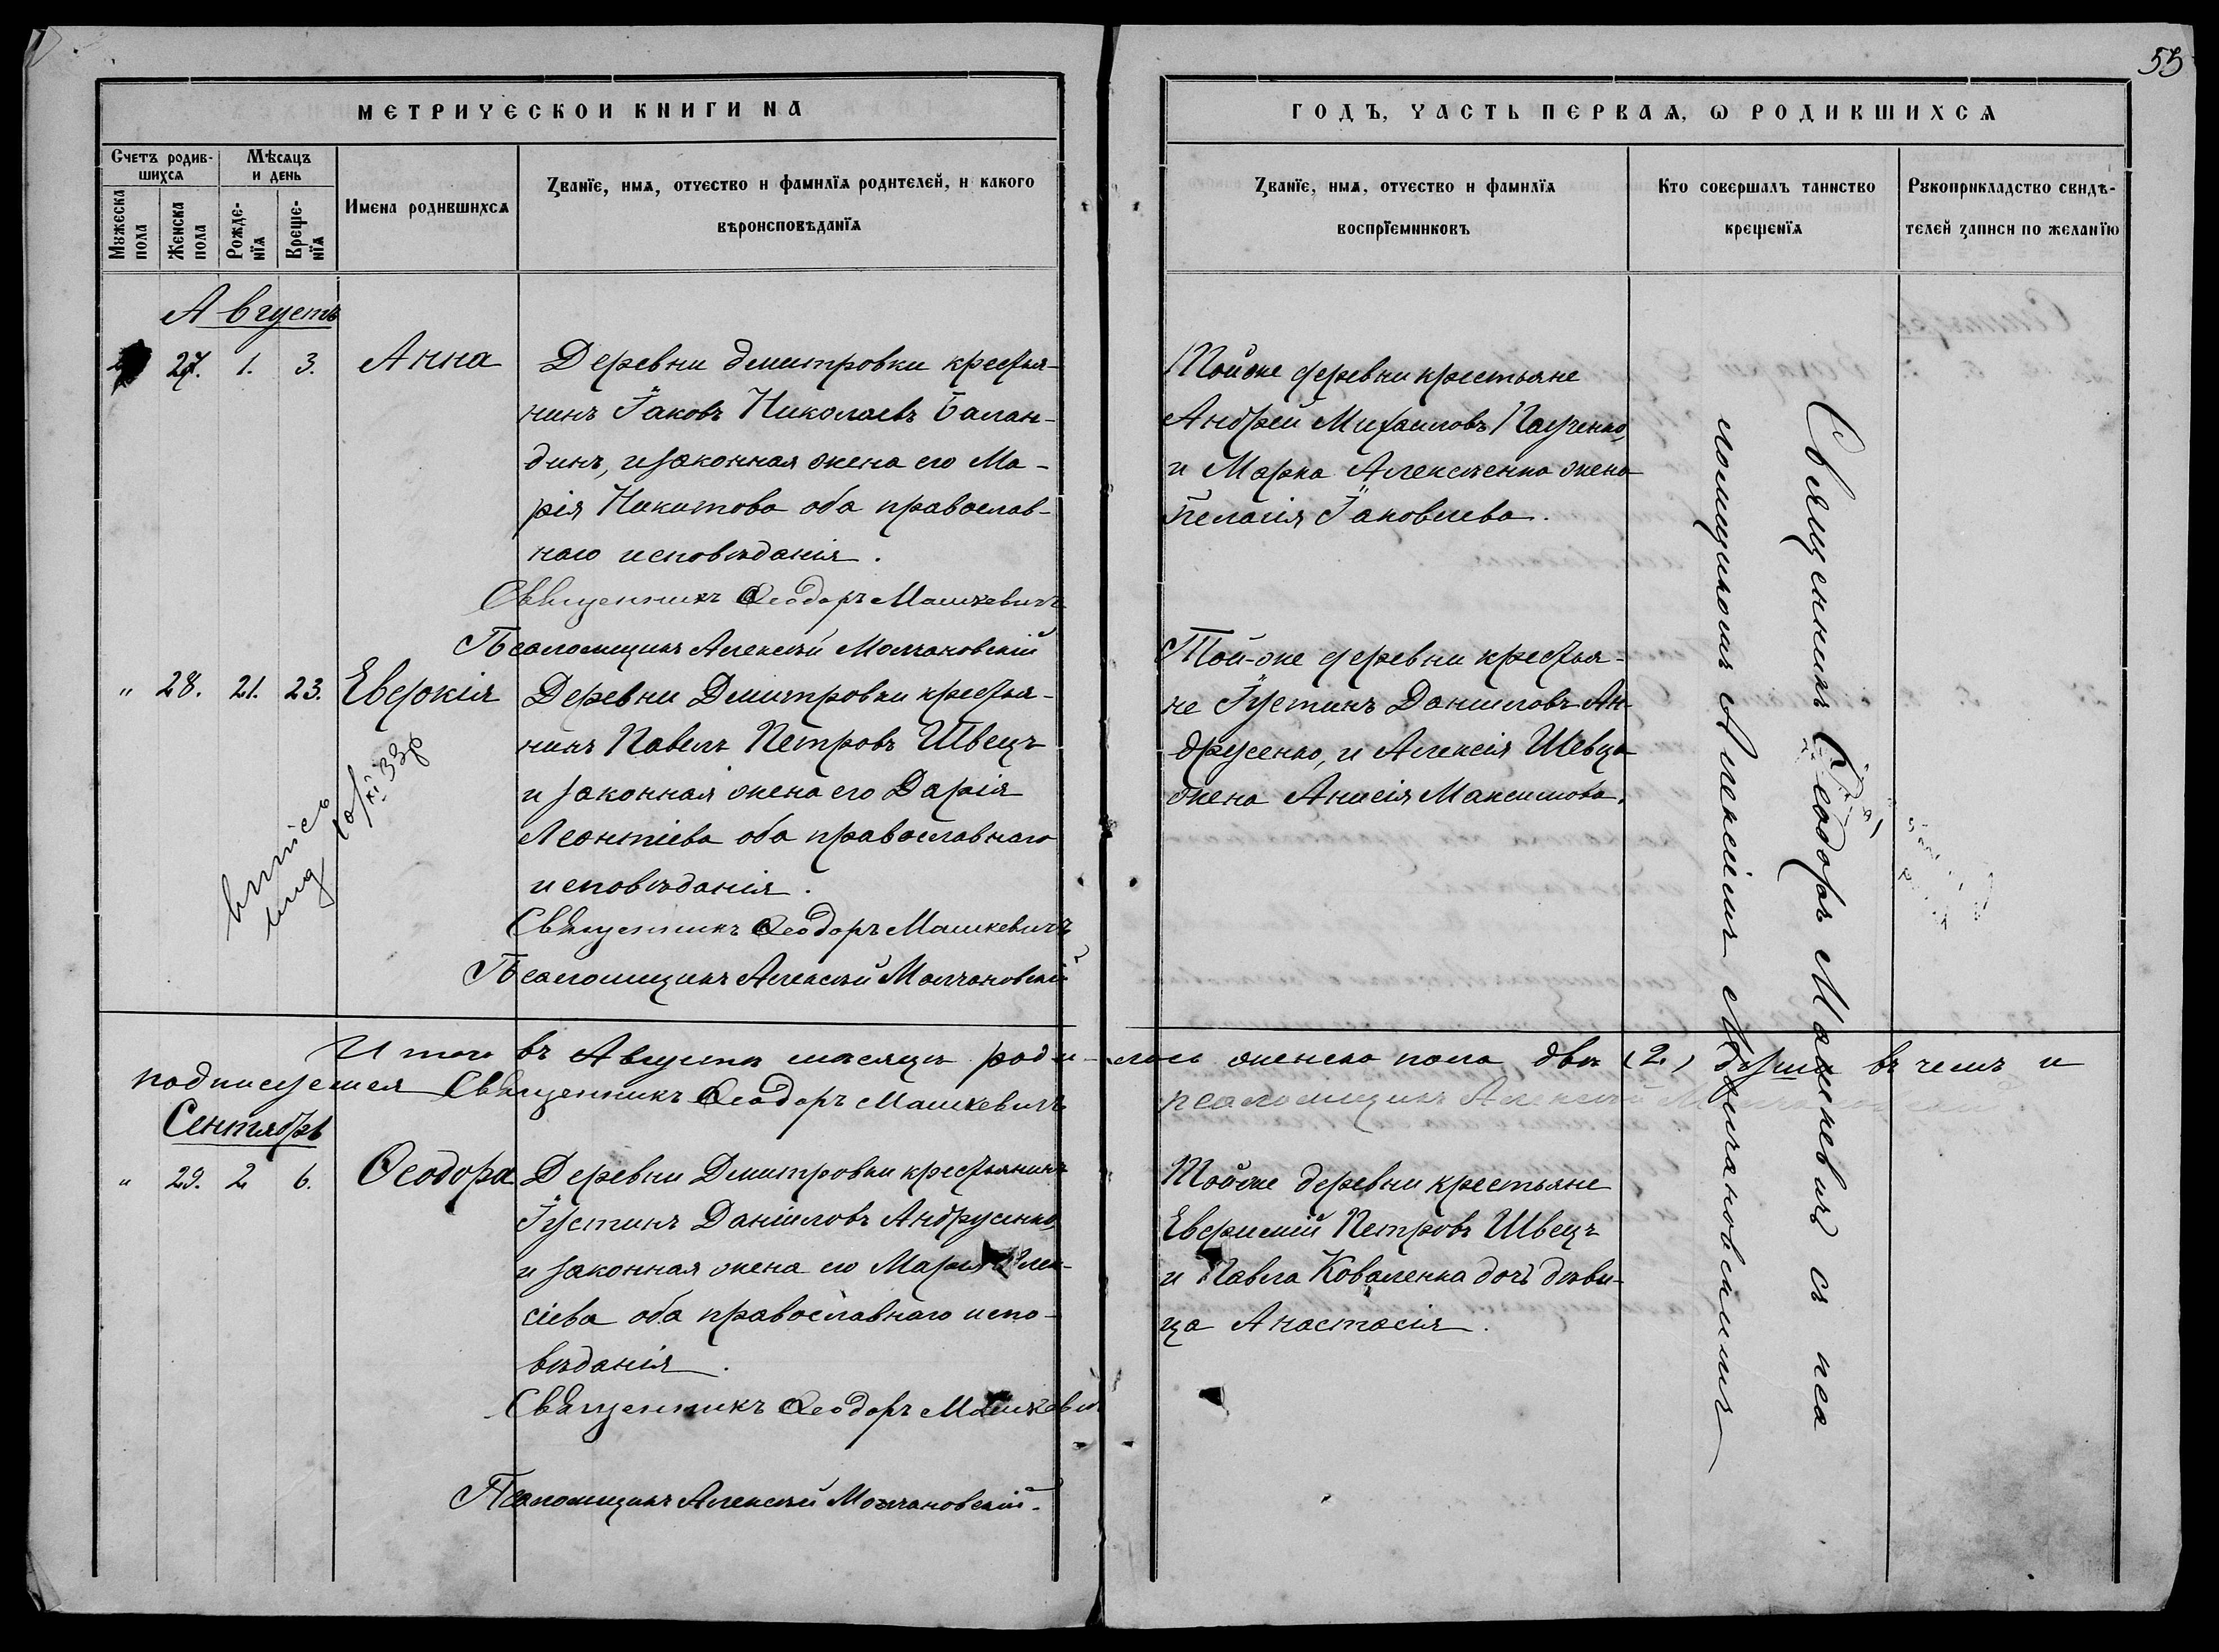 55
МЕТРИЧЕСКОЙ КНИГИ НА
ГОДЪ, ЧАСТЬ ПЕРВАѦ, Ѡ РОДИВШИХСѦ
Счетъ родив-
шихсѧ
Мѣсѧцъ
и день
Мꙋжеска
пола
Женска
пола
Рожде-
нїѧ
Креще-
нїѧ
Имена родившихсѧ
Званїе, имѧ, отчество и фамилїѧ родителей, и какого
вѣроисповѣданїѧ
Званїе, имѧ, отчество и фамилїѧ
воспрїемниковъ
Кто совершалъ таинство
крещенїѧ
Рꙋкоприкладство свидѣ-
телей записи по желанїю
Августъ
27. 1. 3. Анна
Деревни Дмитровки крестья-
нинъ Іаковъ Николаевъ Балан-
динъ, и законная жена его Ма-
рія Никитова оба православ-
наго исповѣданія.
Священникъ Ѳеодоръ Машкевичъ
Псаломщикъ Алексѣй Молчановскій
Тойже деревни крестьяне
Андрей Михаиловъ
и Марка Алексѣенка жена
Пелагія Іаковлева.
" 28. 21. 23. Евдокія
Деревни Дмитровки крестья-
нинъ Павелъ Петровъ Швецъ
и законная жена его Дарія
Леонтіева оба православнаго
исповѣданія.
Священникъ Ѳеодоръ Машкевичъ
Псаломщикъ Алексѣй Молчановскій
Той-же деревни крестья-
не Іустинъ Даниловъ Ан-
друсенко, и Алексія Шевца
жена Анисія Максимова.
Священникъ Ѳеодоръ Машкевичъ съ пса
ломщикомъ Алексіемъ Молчановскимъ
Итого въ Августѣ мѣсяцѣ роди-лось женска пола двѣ (2) души въ чемъ и
подписуемся Священникъ Ѳеодоръ Машкевичъ
псаломщикъ Алексѣй Молчановскій
Сентябрь
" 29. 2 6. Ѳеодора
Деревни Дмитровки крестьянинъ
Іустинъ Даніиловъ Андрусенко
и законная жена его Марія Алек-
сіева оба православнаго испо-
вѣданія.
Священникъ Ѳеодоръ Машкевичъ
Псаломщикъ Алексѣй Молчановскій.
Тойже деревни крестьяне
Евфимій Петровъ Швецъ
и Павла Коваленка дочь дѣви-
ца Анастасія.